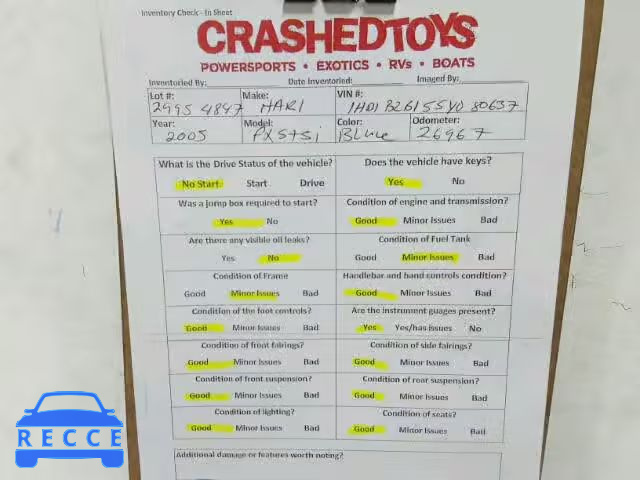 Inventory Check - In Sheet
CRASHEDTOYS
POWERSPORTS • EXOTICS • RVs • BOATS
Inventoried By: Date Inventoried: Imaged By:
Lot #: 2995 4847 Make: HARI VIN #: 1HD1 B2B155Y0 80637
Year: 2005 Model: FXSTSi Color: BLUe Odometer: 26967
What is the Drive Status of the vehicle? Does the vehicle have keys?
No Start Start Drive Yes No
Was a jump box required to start? Condition of engine and transmission?
Yes No Good Minor Issues Bad
Are there any visible oil leaks? Condition of Fuel Tank
Yes No Good Minor Issues Bad
Condition of Frame Handlebar and hand controls condition?
Good Minor Issues Bad Good Minor Issues Bad
Condition of the foot controls? Are the instrument guages present?
Good Minor Issues Bad Yes Yes/has issues No
Condition of front fairings? Condition of side fairings?
Good Minor Issues Bad Good Minor Issues Bad
Condition of front suspension? Condition of rear suspension?
Good Minor Issues Bad Good Minor Issues Bad
Condition of lighting? Condition of seats?
Good Minor Issues Bad Good Minor Issues Bad
Additional damage or features worth noting?
RECCE